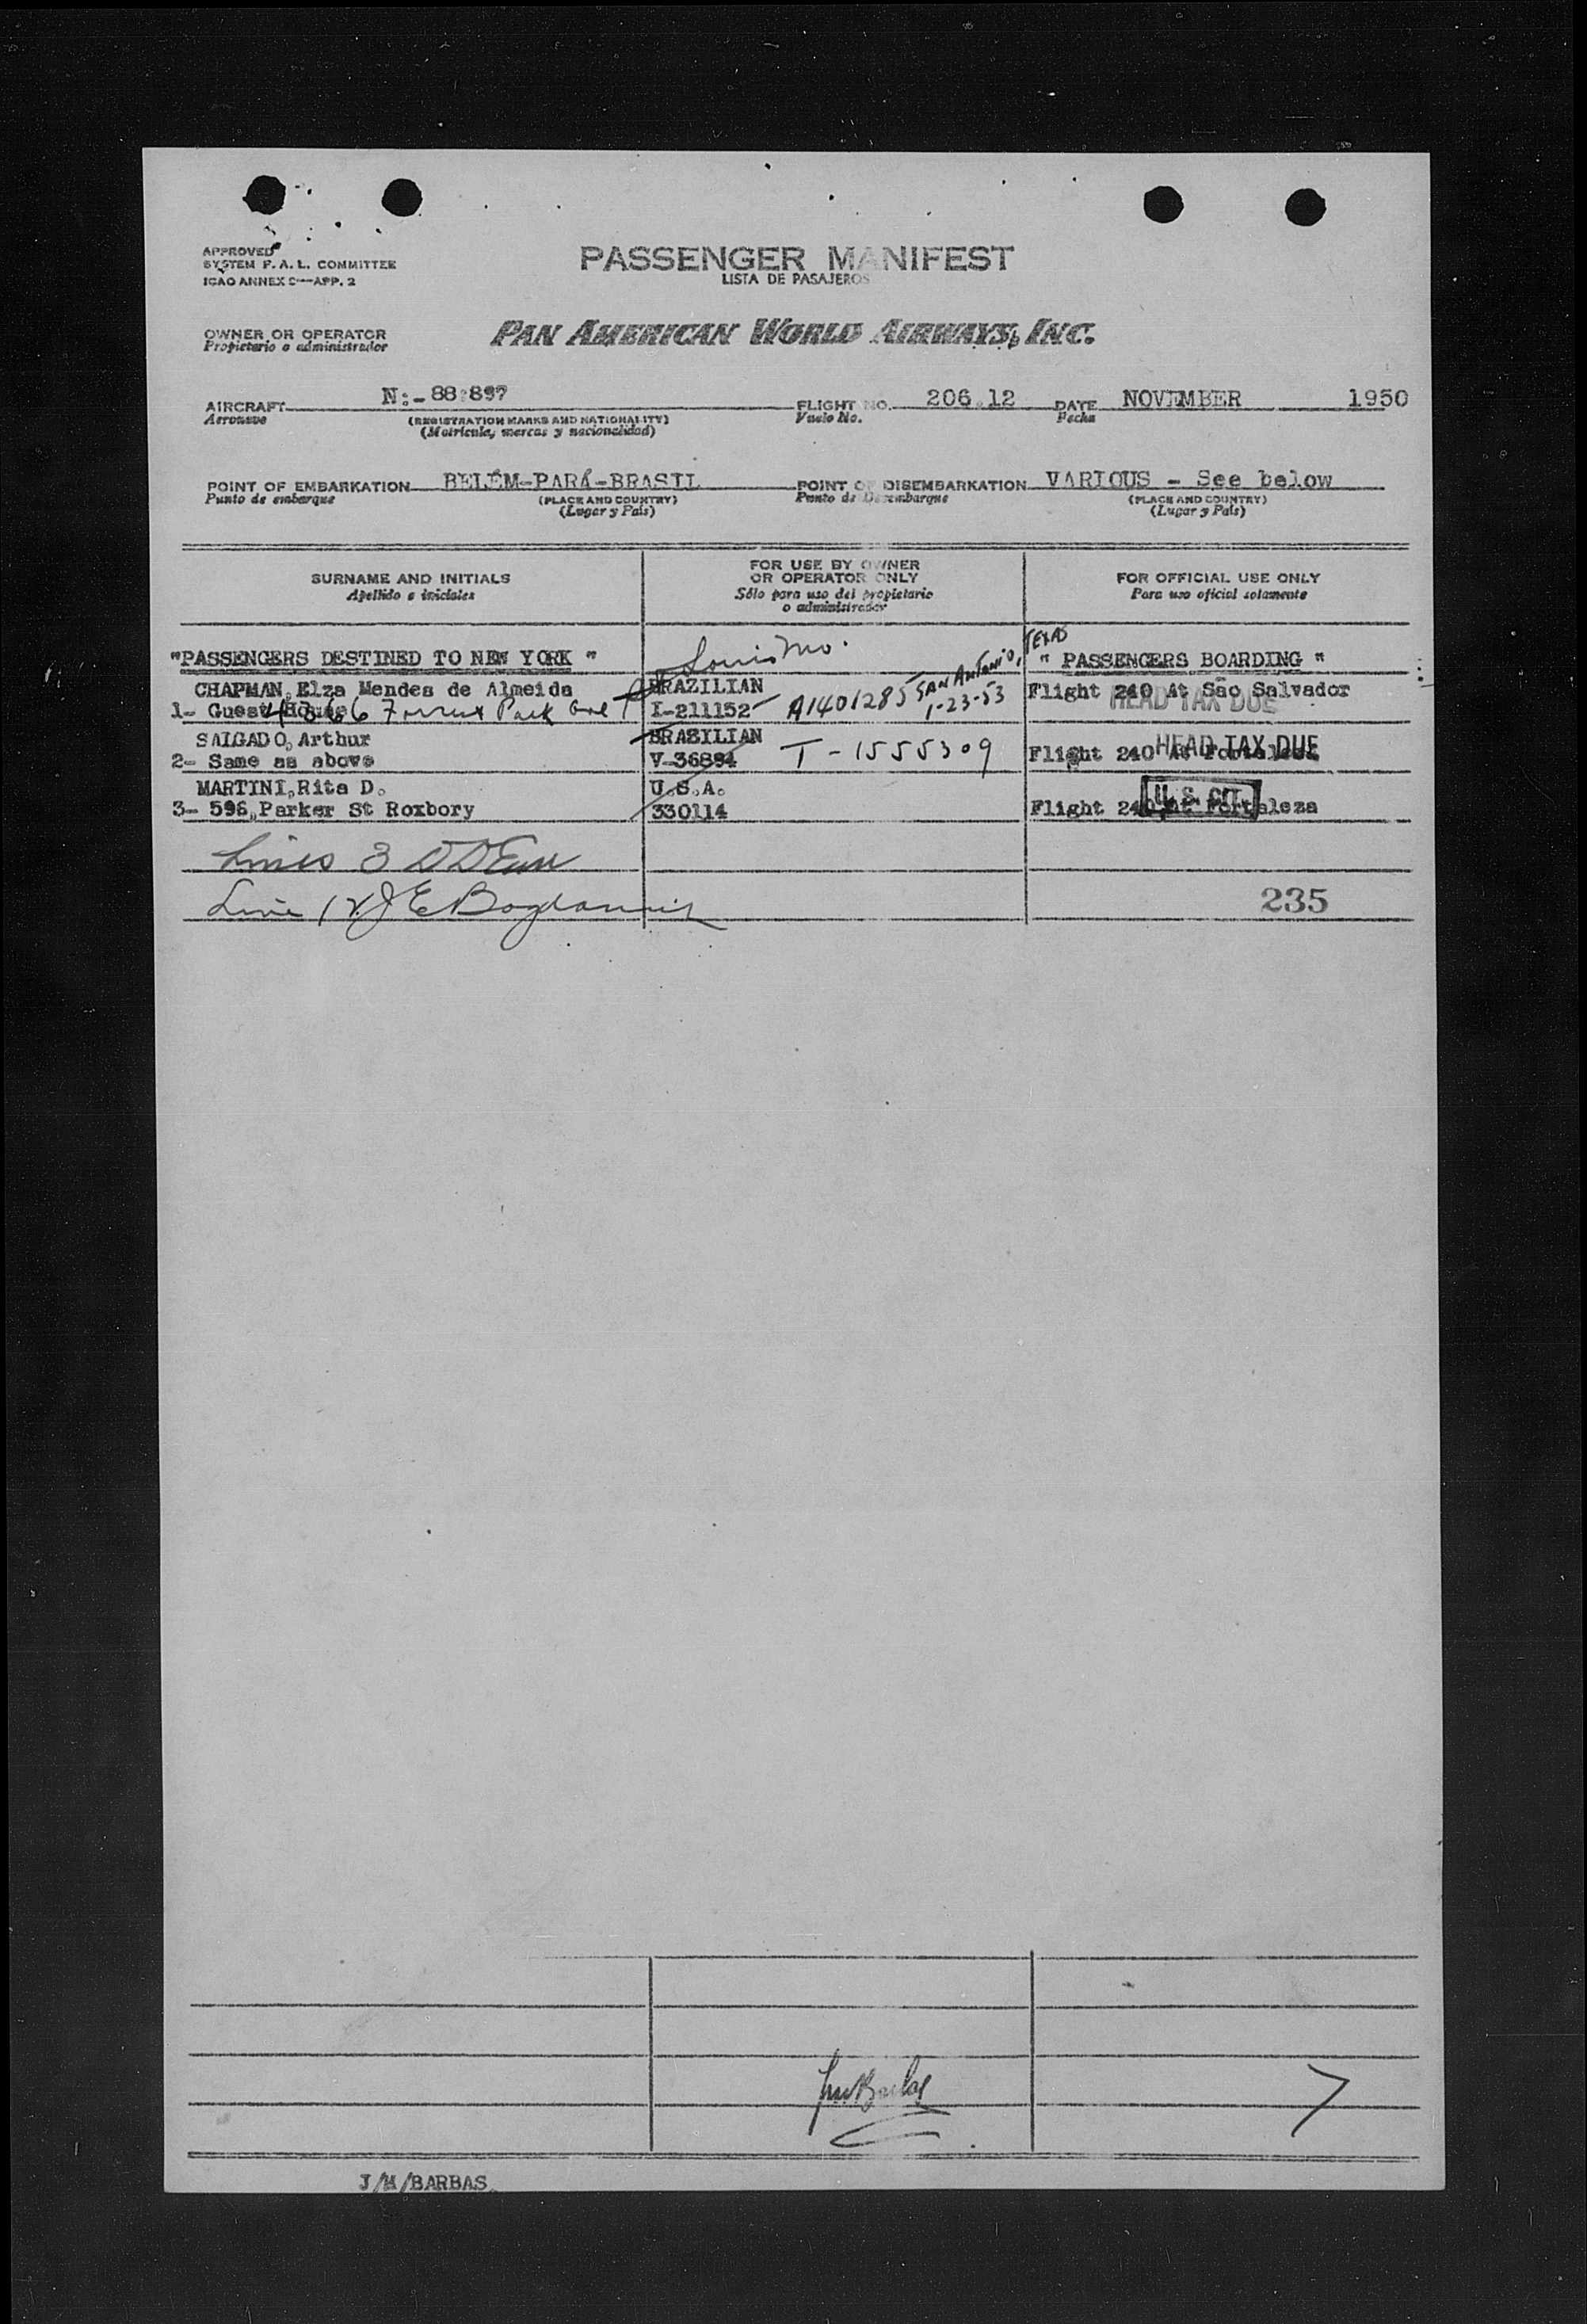 APPROVED
SYSTEM F. A. L. COMMITTEE
ICAO ANNEX 9—APP. 2
PASSENGER MANIFEST
LISTA DE PASAJEROS
OWNER OR OPERATOR
Propietario o administrador
PAN AMERICAN WORLD AIRWAYS, INC.
AIRCRAFT N:-88:897
Aeronave
(REGISTRATION MARKS AND NATIONALITY)
(Matrícula, marcas y nacionalidad)
FLIGHT NO. 206.12
Vuelo No.
DATE NOVEMBER 1950
Fecha
POINT OF EMBARKATION BELÉM-PARÁ-BRASIL
Punto de embarque
(PLACE AND COUNTRY)
(Lugar y País)
POINT OF DISEMBARKATION VARIOUS - See below
Punto de Desembarque
(PLACE AND COUNTRY)
(Lugar y País)
SURNAME AND INITIALS
Apellido e iniciales
FOR USE BY OWNER
OR OPERATOR ONLY
Sólo para uso del propietario
o administrador
FOR OFFICIAL USE ONLY
Para uso oficial solamente
"PASSENGERS DESTINED TO NEW YORK "
Louis Mo.
TEXAS
" PASSENGERS BOARDING "
CHAPMAN, Elza Mendes de Almeida
1- Guest House
4366 Forrest Park Ave
BRAZILIAN
I-211152
A1401285
SAN ANTONIO,
1-23-53
Flight 240 At São Salvador
HEAD TAX DUE
SALGADO, Arthur
2- Same as above
BRASILIAN
V-36894
T-1555309
Flight 240 At Fortaleza
HEAD TAX DUE
MARTINI, Rita D.
3- 596, Parker St Roxbory
U.S.A.
330114
Flight 240 At Fortaleza
U. S. CIT.
Lines 3
Line 1 2 J E
235
J/M/BARBAS